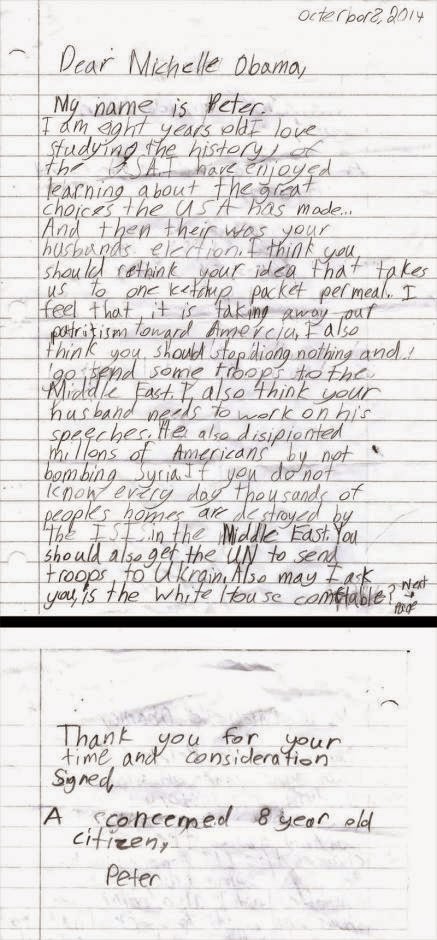 Octerbor 8, 2014
Dear Michelle Obama,
My name is Peter.
I am eght years old I love
studying the history of
the USA. I have enjoyed
learning about the great
choices the USA has made...
And then their was your
husbands election. I think you
should rethink your idea that takes
us to one ketchup packet per meal. I
feel that it is taking away our
patritism toward Amercia, I also
think you should stop diong nothing and
go send some troops to the
Middle East. I also think your
husband needs to work on his
speeches. He also disipionted
millons of Americans by not
bombing Syria. If you do not
know every day thousands of
peoples homes are destroyed by
the ISI. in the Middle East. You
should also get the UN to send
troops to Ukrain. Also may I ask
you, is the White House comftable? Next
Page
Thank you for your
time and consideration
Signed,
A concerned 8 year old
citizen,
Peter